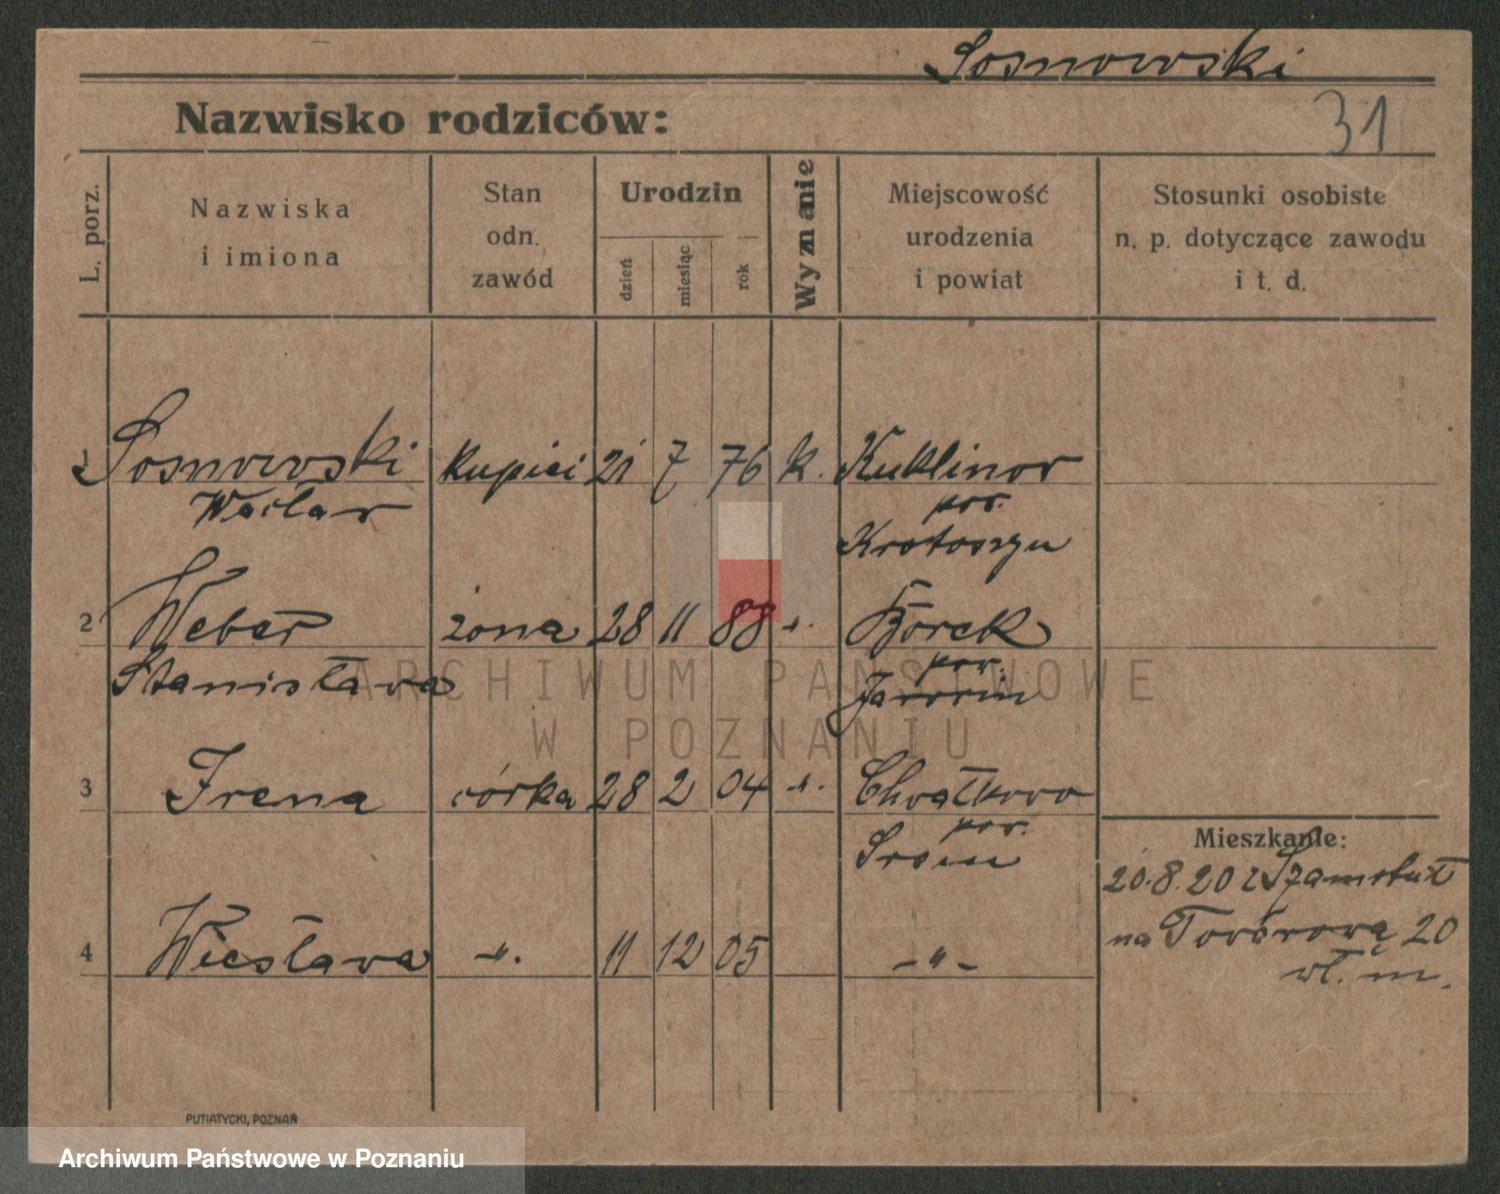 Sosnowski
Nazwisko rodziców:
31
L. porz.
Nazwiska
i imiona
Stan
odn.
zawód
Urodzin
dzień
miesiąc
rok
Wyznanie
Miejscowość
urodzenia
i powiat
Stosunki osobiste
n. p. dotyczące zawodu
i t. d.
1 Sosnowski kupiec 21 7 76 k. Kuklinow
Wacław pow.
Krotoszyn
2 Weber żona 28 11 88 -"- Borek
Stanisława pow.
Jarocin
3 Irena córka 28 2 04 -"- Chwałkowo
pow.
Srem
Mieszkanie:
20.8.20 z Szamotuł
na Towarową 20
wł. m.
4 Wiesława -"- 11 12 05 -"-
PUTIATYCKI, POZNAŃ
ARCHIWUM PAŃSTWOWE
W POZNANIU
Archiwum Państwowe w Poznaniu